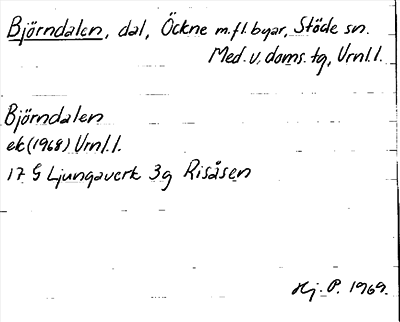 Björndalen, dal, Öckne m.fl. byar, Stöde sn.
Med. v. doms. tg, Vrnl.l.
Björndalen
ek (1968) Vrnl.l.
17 G Ljungaverk 3g Risåsen
Hj. P. 1969.